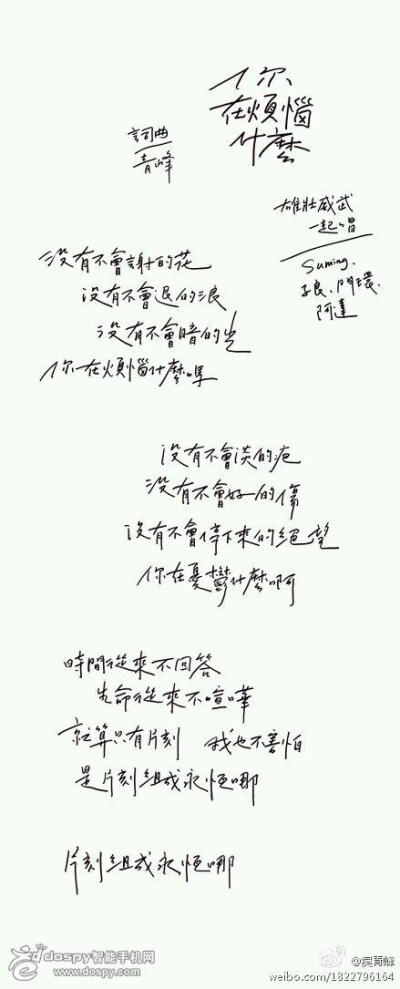 你
在煩惱
什麼
詞曲
青峰
雄壯威武
一起唱
Suming、
子良、門環、
阿達
沒有不會謝的花
沒有不會退的浪
沒有不會暗的光
你在煩惱什麼嗎
沒有不會淡的疤
沒有不會好的傷
沒有不會停下來的絕望
你在憂鬱什麼啊
時間從來不回答
生命從來不喧嘩
就算只有片刻 我也不害怕
是片刻組成永恆哪
片刻組成永恆哪
dospy智能手机网
www.dospy.com
@吴青峰
weibo.com/1822796164